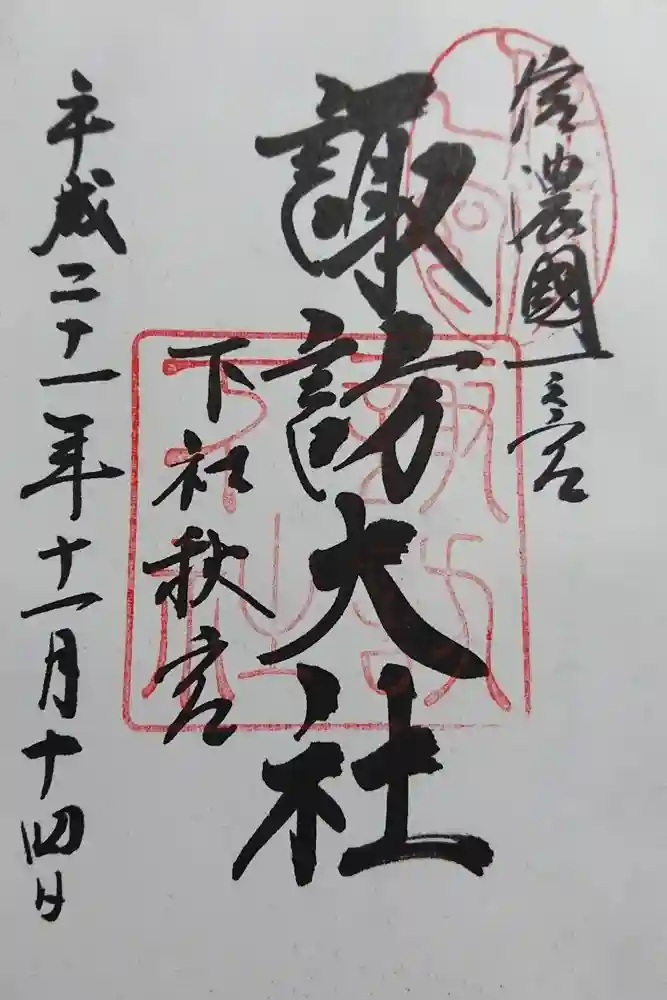 信濃國一之宮
諏訪大社
下社秋宮
平成二十一年十一月十四日